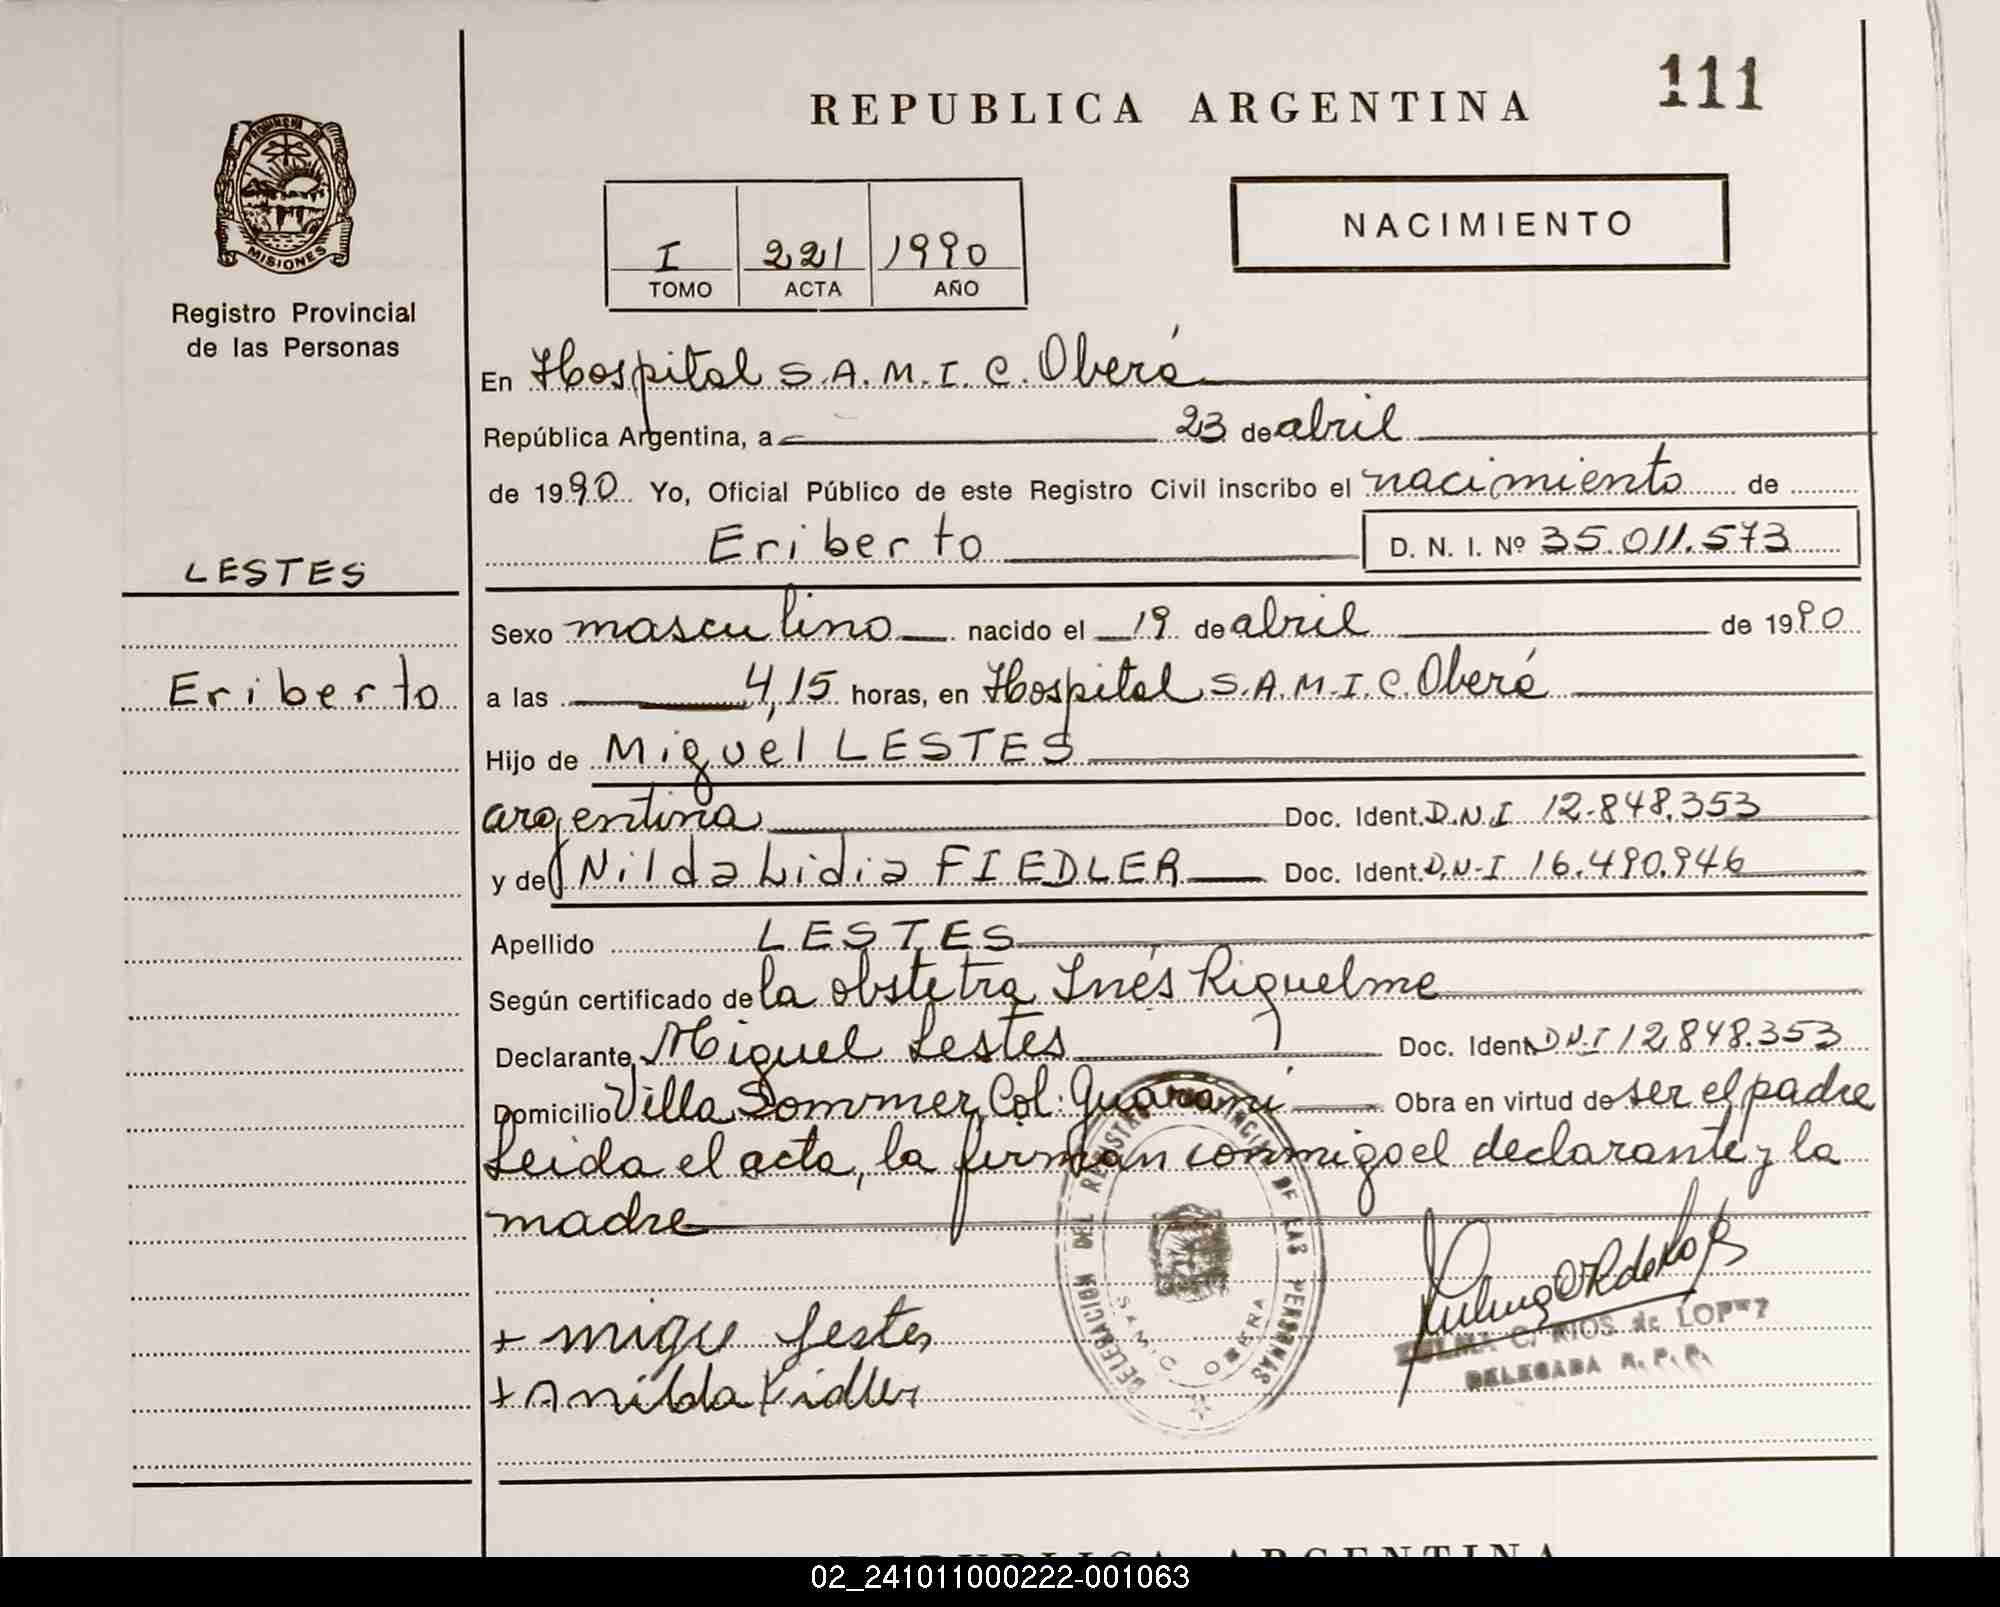 REPUBLICA ARGENTINA
111
PROVINCIA DE
MISIONES
Registro Provincial
de las Personas
NACIMIENTO
I 221 1990
TOMO ACTA AÑO
En Hospital S.A.M.I.C. Oberá
República Argentina, a 23 de abril
de 1990 Yo, Oficial Público de este Registro Civil inscribo el nacimiento de
Eriberto D. N. I. Nº 35.011.573
LESTES
Sexo masculino nacido el 19 de abril de 1990
Eriberto
a las 4,15 horas, en Hospital S.A.M.I.C. Oberá
Hijo de Miguel LESTES
argentina Doc. Ident. D.N.I 12.848.353
y de Nilda Lidia FIEDLER Doc. Ident. D.N.I 16.490.946
Apellido LESTES
Según certificado de la obstetra Inés Riquelme
Declarante Miguel Lestes Doc. Ident D.N.I 12.848.353
Domicilio Villa Sommer, Col. Guaraní Obra en virtud de ser el padre
Leida el acta, la firman conmigo el declarante y la
madre
DELEGACION DEL REGISTRO PROVINCIAL DE LAS PERSONAS
SAMIC OBERA
+ migu Lestes
C. RIOS de LOPEZ
DELEGADA R. P. P.
REPUBLICA ARGENTINA
02_241011000222-001063